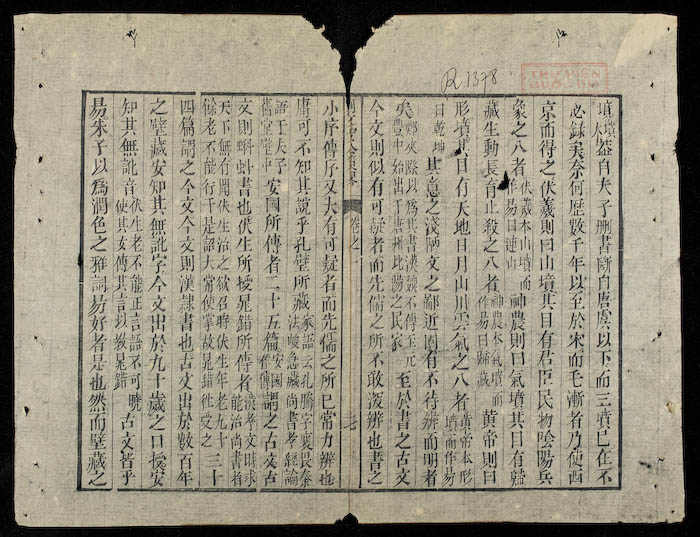 R 1378
THƯ VIỆN
QUỐC GIA
蓋自夫子刪書斷自唐虞以下而三墳已在不
必錄矣奈何歷數千年以至於宋而毛漸者乃使西
京而得之伏羲則曰山墳其目有君臣民物陰陽兵
象之八者伏羲本山墳而作易曰連山神農則曰氣墳其目有歸
藏生動長育止殺之八者神農本氣墳而作易曰歸藏黃帝則曰
形墳其目有天地日月山川雲氣之八者黃帝本形墳而作易
曰乾坤其意之淺陋文之鄙近固有不待辨而明者
矣鄭夾漈以為其書漢魏不傳至元豐中始出于唐州比陽之民家至於書之古文
今文則似有可疑者而先儒之所不敢遽辨也書之
卷之一
小序傳序又大有可疑者而先儒之所已嘗力辨也
庸可不知其說乎孔壁所藏家語云孔騰字襄畏秦法峻急藏尚書孝經論
語于夫子舊堂壁中安國所傳者二十五篇安國作傳謂之古文古
文則蝌蚪書也伏生所授晁錯所傳者漢孝文時求能治尚書者
天下無有聞伏生治之欲召時伏生年老九十餘老不能行于是詔太常使掌故晁錯往受之三十
四篇謂之今文今文則漢隸書也古文出於數百年
之壁藏安知其無訛字今文出於九十歲之口授安
知其無訛音伏生老不能正言語不可曉使其女傳其言以教晁錯古文皆平
易朱子以為潤色之雅詞易好者是也然而壁藏之